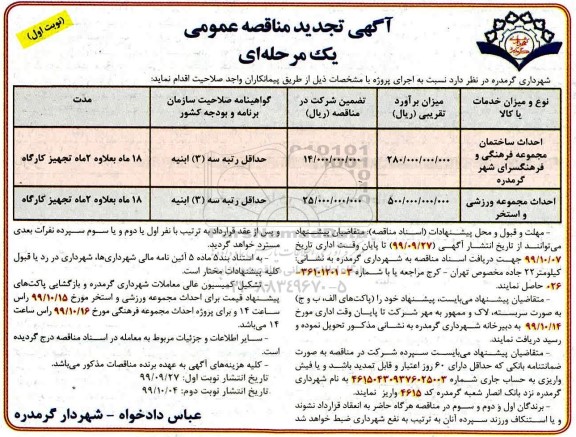 (نوبت اول)
آگهی تجدید مناقصه عمومی
یک مرحله‌ای
شهرداری گرمدره در نظر دارد نسبت به اجرای پروژه با مشخصات ذیل از طریق پیمانکاران واجد صلاحیت اقدام نماید:
نوع و میزان خدمات یا کالا
میزان برآورد تقریبی (ریال)
تضمین شرکت در مناقصه (ریال)
گواهینامه صلاحیت سازمان برنامه و بودجه کشور
مدت
احداث ساختمان مجموعه فرهنگی و فرهنگسرای شهر گرمدره
۲۸۰/۰۰۰/۰۰۰/۰۰۰
۱۴/۰۰۰/۰۰۰/۰۰۰
حداقل رتبه سه (۳) ابنیه
۱۸ ماه بعلاوه ۲ماه تجهیز کارگاه
احداث مجموعه ورزشی و استخر
۵۰۰/۰۰۰/۰۰۰/۰۰۰
۲۵/۰۰۰/۰۰۰/۰۰۰
حداقل رتبه سه (۳) ابنیه
۱۸ ماه بعلاوه ۲ماه تجهیز کارگاه
- مهلت و قبول و محل پیشنهادات (اسناد مناقصه): متقاضیان پیشنهاد
می‌توانند از تاریخ انتشار آگهی (۹۹/۰۹/۲۷) تا پایان وقت اداری تاریخ
۹۹/۱۰/۰۷ جهت دریافت اسناد مناقصه به شهرداری گرمدره به نشانی:
کیلومتر ۲۲ جاده مخصوص تهران - کرج مراجعه یا با شماره ۳-۳۶۱۰۱۲۰۱-
۰۲۶ حاصل نمایند.
- متقاضیان پیشنهاد می‌بایست، پیشنهاد خود را (پاکت‌های الف، ب و ج)
به صورت سربسته، لاک و ممهور به مهر شرکت تا پایان وقت اداری مورخ
۹۹/۱۰/۱۴ به دبیرخانه شهرداری گرمدره به نشانی مذکور تحویل نموده و
رسید دریافت نمایند.
- متقاضیان پیشنهاد می‌بایست سپرده شرکت در مناقصه به صورت
ضمانتنامه بانکی که حداقل دارای ۶۰ روز اعتبار و قابل تمدید باشد و یا فیش
واریزی به حساب جاری شماره ۴۶۱۵۰۴۳۰۹۳۷۶۰۲۵۰۰۳ به نام شهرداری
گرمدره نزد بانک انصار شعبه گرمدره کد ۴۶۱۵ واریز نمایند.
- برندگان اول و دوم و سوم در مناقصه هرگاه حاضر به انعقاد قرارداد نشوند
و یا استنکاف ورزند سپرده آنان به ترتیب به نفع شهرداری ضبط خواهد شد
و پس از عقد قرارداد به ترتیب با نفر اول یا دوم و یا سوم سپرده نفرات بعدی
مسترد خواهد گردید.
- به استناد بند ۵ ماده ۵ آئین نامه مالی شهرداری‌ها، شهرداری در رد یا قبول
کلیه پیشنهادات مختار است.
- تشکیل کمیسیون عالی معاملات شهرداری گرمدره و بازگشایی پاکت‌های
پیشنهاد قیمت برای احداث مجموعه ورزشی و استخر مورخ ۹۹/۱۰/۱۵ راس
ساعت ۱۴ و برای پروژه احداث مجموعه فرهنگی مورخ ۹۹/۱۰/۱۶ راس ساعت
۱۴ می‌باشد.
- سایر اطلاعات و جزئیات مربوط به معامله در اسناد مناقصه درج گردیده
است.
- کلیه هزینه‌های آگهی به عهده برنده مناقصات مذکور می‌باشد.
تاریخ انتشار نوبت اول: ۹۹/۰۹/۲۷
تاریخ انتشار نوبت دوم: ۹۹/۱۰/۰۴
عباس دادخواه - شهردار گرمدره